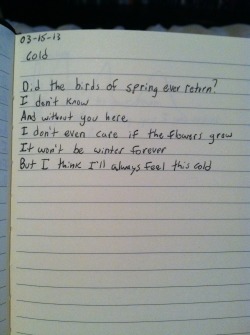 03-15-13
Cold
Did the birds of spring ever return?
I don't know
And without you here
I don't even care if the flowers grow
It won't be winter forever
But I think I'll always feel this cold